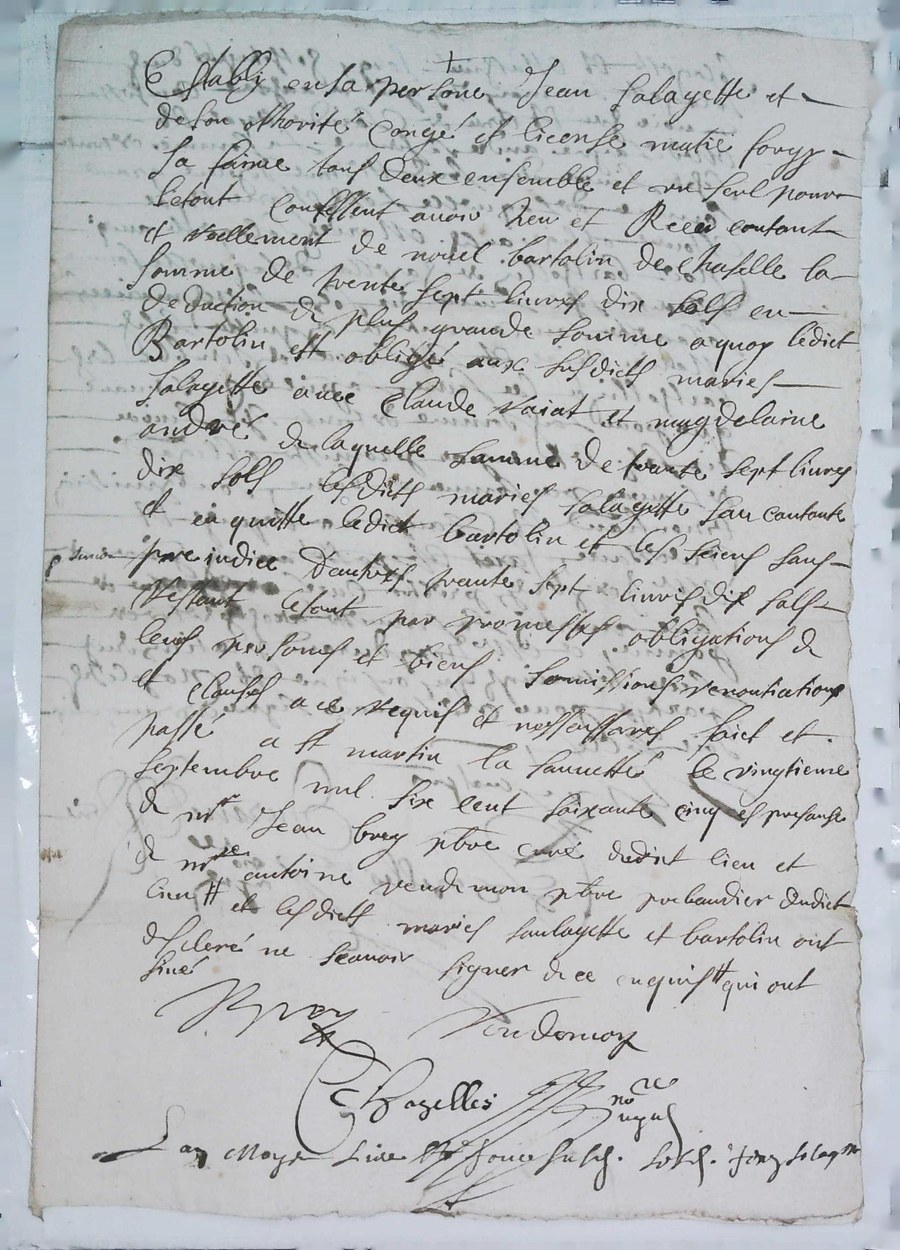 Establi en sa persone Jean salayette et
de son othorité congé et license matie
sa faime tous deux ensemble et un seul pour
le tout confessent avoir heu et Receu contant
et reellement de nouel bartolin de chaselle la
somme de trente sept livres dix sols en
deduction de plus grande somme a quoy ledict
Bartolin est obligé aux susdicts maries
salayette avec Claude vaiat et magdelaine
andré de laquelle somme de trante sept livres
dix sols lesdicts maries salayette san contante
et en quitte ledict bartolin et les siens sans
preiudice d'autres trante sept livres dix sols
restant le tout par promesses obligations de
leurs persones et biens soumissions renontiations
et clauses a ce requis et nessessaires faict et
passé a st martin la sauueté le vingtieme
septembre mil six cent soixante cinq es presance
de mre Jean brey pbre curé dudict lieu et
de mre antoine vendemon pbre prebandier dudict
lieu et lesdicts maries saulayette et bartolin ont
desclere ne scauoir signer de ce enquis qui ont
siné
Brey Vendemon
Chazelles nore